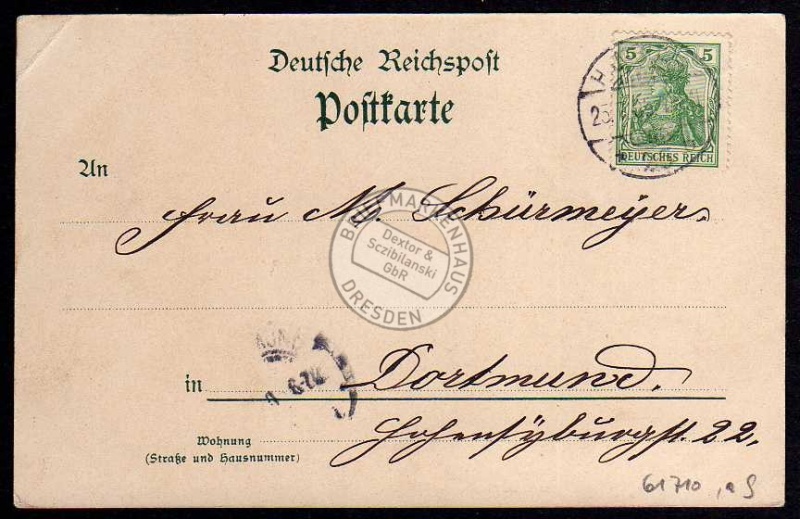 Deutsche Reichspost
Postkarte
5 5
DEUTSCHES REICH
H
25
An
Frau M. Schürmeyer
BRIEFMARKENHAUS
Dextor &
Sczibilanski
GbR
DRESDEN
in Dortmund.
Hohensyburgst. 22.
Wohnung
(Straße und Hausnummer)
61710